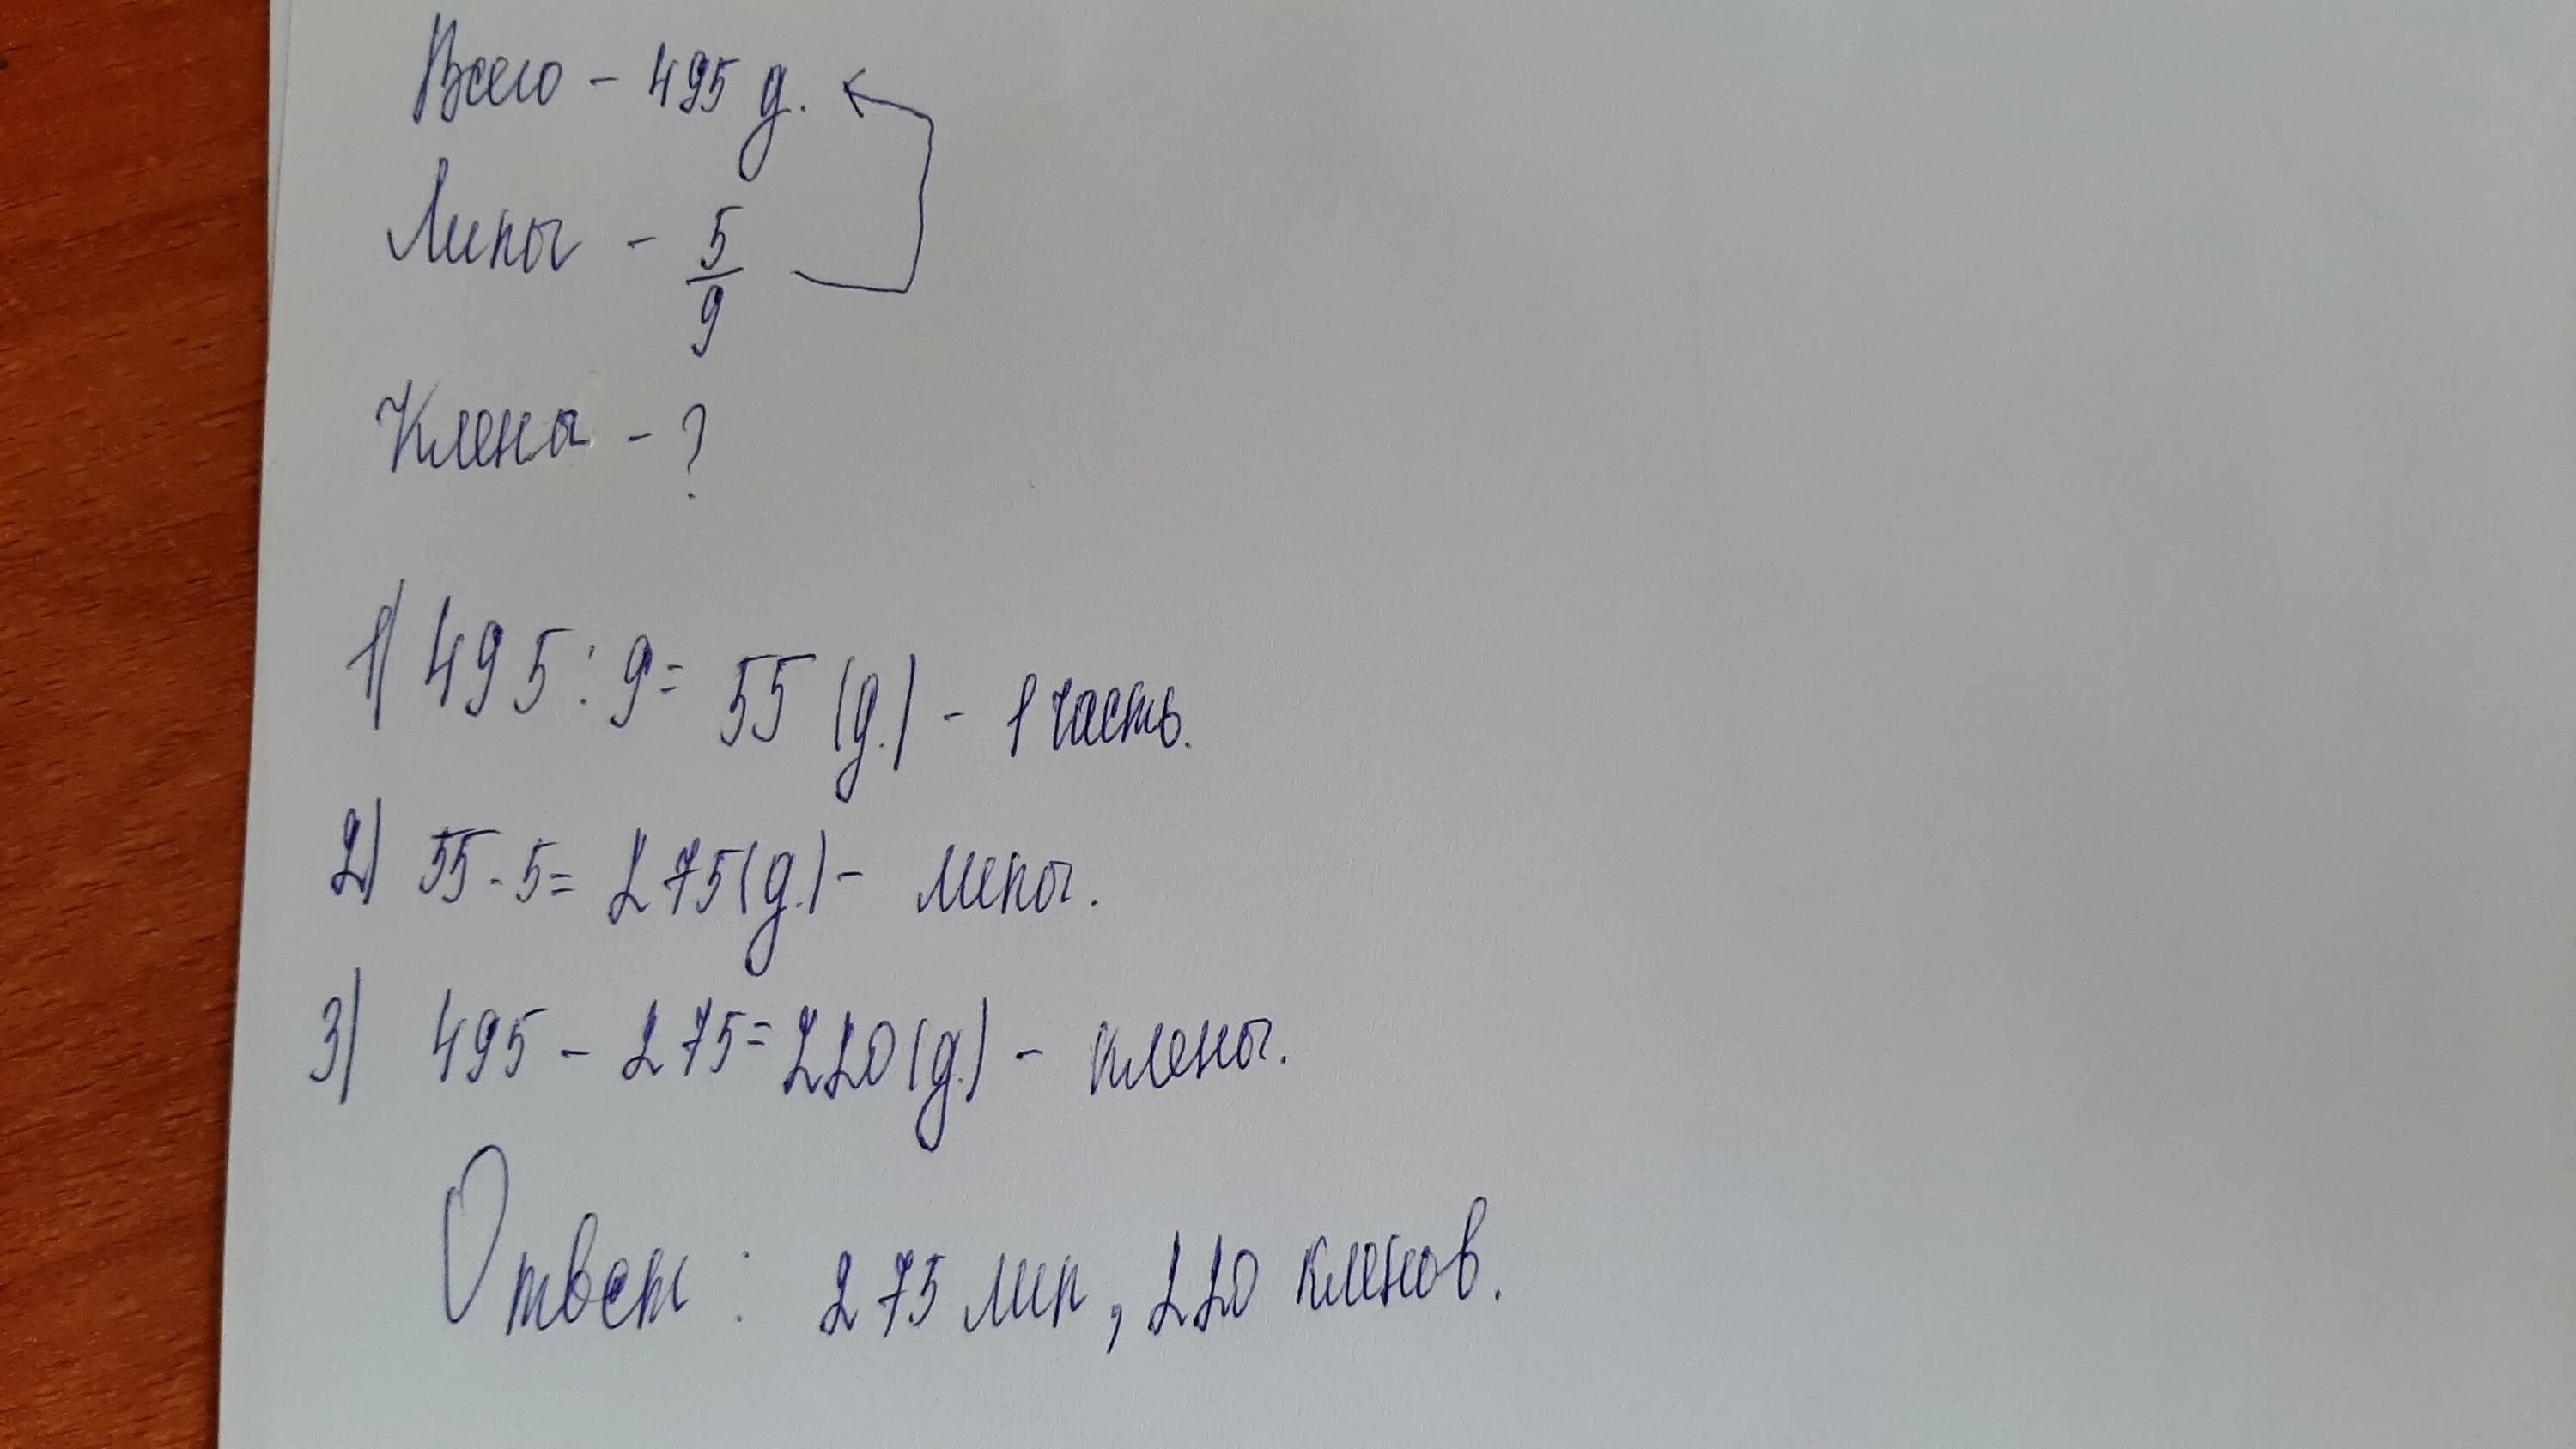 Всего - 495 д.
Липы - 5/9
Клены - ?
1) 495 : 9 = 55 (д.) - 1 часть.
2) 55 · 5 = 275 (д.) - липы.
3) 495 - 275 = 220 (д.) - клены.
Ответ : 275 лип, 220 кленов.